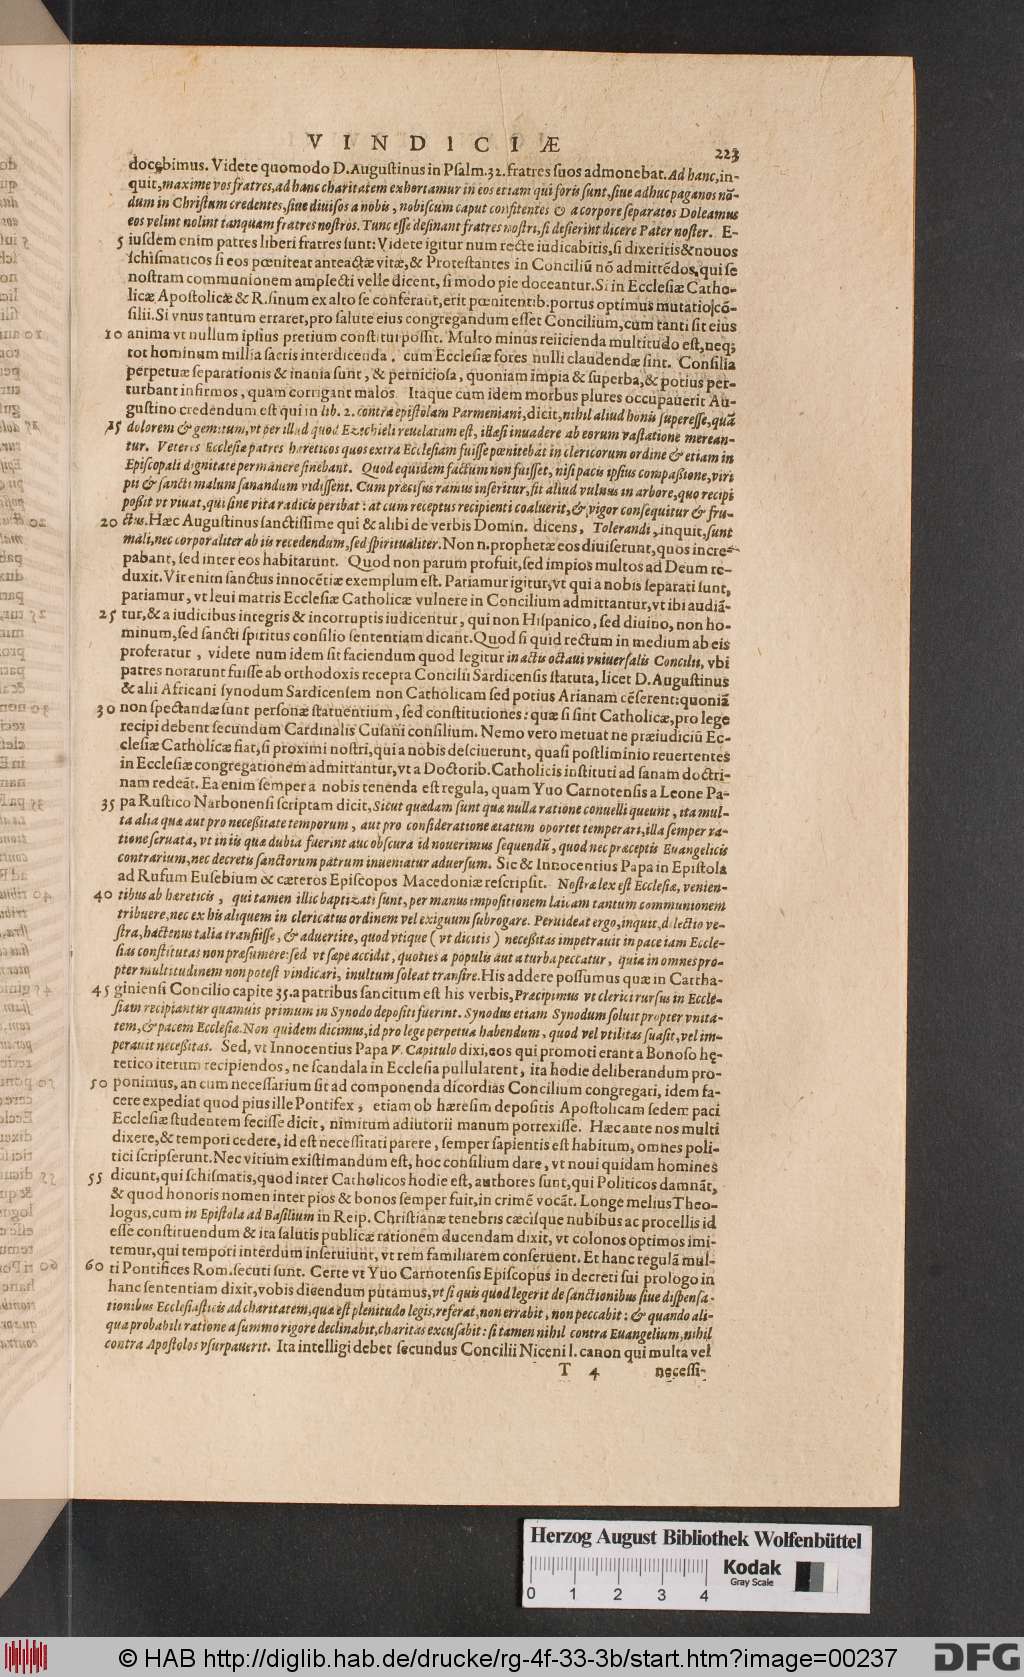 VINDICIÆ
223
docebimus. Videte quomodo D. Auguſtinus in Pſalm. 32. fratres ſuos admonebat. Ad hanc, in-
quit, maxime vos fratres, ad hanc charitatem exhortamur in eos etiam qui foris ſunt, ſiue adhuc paganos nō-
dum in Chriſtum credentes, ſiue diuiſos a nobis, nobiſcum caput confitentes & a corpore ſeparatos Doleamus
eos velint nolint tanquam fratres noſtros. Tunc eſſe deſinant fratres noſtri, ſi deſierint dicere Pater noſter. E-
5 iuſdem enim patres liberi fratres ſunt: Videte igitur num recte iudicabitis, ſi dixeritis & nouos
ſchiſmaticos ſi eos pœniteat anteactæ vitæ, & Proteſtantes in Conciliū nō admittēdos, qui ſe
noſtram communionem amplecti velle dicent, ſi modo pie doceantur. Si in Eccleſiæ Catho-
licæ Apoſtolicæ & R. ſinum ex alto ſe conferant, erit pœnitentib. portus optimus mutatio cō-
ſilii. Si vnus tantum erraret, pro ſalute eius congregandum eſſet Concilium, cum tanti ſit eius
10 anima vt nullum ipſius pretium conſtitui poſſit. Multo minus reiicienda multitudo eſt, neq;
tot hominum millia ſacris interdicenda, cum Eccleſiæ fores nulli claudendæ ſint. Conſilia
perpetuæ ſeparationis & inania ſunt, & pernicioſa, quoniam impia & ſuperba, & potius per-
turbant infirmos, quam corrigant malos. Itaque cum idem morbus plures occupauerit Au-
guſtino credendum eſt qui in lib. 2. contra epiſtolam Parmeniani, dicit, nihil aliud bonis ſupereſſe, quā
15 dolorem & gemitum, vt per illud quod Ezechieli reuelatum eſt, illæſi inuadere ab eorum vaſtatione merean-
tur. Veteres Eccleſiæ patres hæreticos quos extra Eccleſiam fuiſſe pœnitebat in clericorum ordine & etiam in
Epiſcopali dignitate permanere ſinebant. Quod equidem factum non fuiſſet, niſi pacis ipſius compaſsione, viri
pii & ſancti malum ſanandum vidiſſent. Cum præciſus ramus inſeritur, fit aliud vulnus in arbore, quo recipi
poßit vt viuat, qui ſine vita radicis peribat: at cum receptus recipienti coaluerit, & vigor conſequitur & fru-
20 ctus. Hæc Auguſtinus ſanctiſſime qui & alibi de verbis Domin. dicens, Tolerandi, inquit, ſunt
mali, nec corporaliter ab iis recedendum, ſed ſpiritualiter. Non n. prophetæ eos diuiſerunt, quos incre-
pabant, ſed inter eos habitarunt. Quod non parum profuit, ſed impios multos ad Deum re-
duxit. Vir enim ſanctus innocētiæ exemplum eſt. Patiamur igitur, vt qui a nobis ſeparati ſunt,
patiamur, vt leui matris Eccleſiæ Catholicæ vulnere in Concilium admittantur, vt ibi audiā-
25 tur, & a iudicibus integris & incorruptis iudicentur, qui non Hiſpanico, ſed diuino, non ho-
minum, ſed ſancti ſpiritus conſilio ſententiam dicant. Quod ſi quid rectum in medium ab eis
proferatur, videte num idem ſit faciendum quod legitur in actis octaui vniuerſalis Concilii, vbi
patres norarunt fuiſſe ab orthodoxis recepta Concilii Sardicenſis ſtatuta, licet D. Auguſtinus
& alii Africani ſynodum Sardicenſem non Catholicam ſed potius Arianam cēſerent: quoniā
30 non ſpectandæ ſunt perſonæ ſtatuentium, ſed conſtitutiones: quæ ſi ſint Catholicæ, pro lege
recipi debent ſecundum Cardinalis Cuſani conſilium. Nemo vero metuat ne præiudiciū Ec-
cleſiæ Catholicæ fiat, ſi proximi noſtri, qui a nobis deſciuerunt, quaſi poſtliminio reuertentes
in Eccleſiæ congregationem admittantur, vt a Doctorib. Catholicis inſtituti ad ſanam doctri-
nam redeāt. Ea enim ſemper a nobis tenenda eſt regula, quam Yuo Carnotenſis a Leone Pa-
35 pa Ruſtico Narbonenſi ſcriptam dicit, Sicut quædam ſunt quæ nulla ratione conuelli queunt, ita mul-
ta alia quæ aut pro neceßitate temporum, aut pro conſideratione ætatum oportet temperari, illa ſemper ra-
tione ſeruata, vt in iis quæ dubia fuerint aut obſcura id nouerimus ſequendū, quod nec præceptis Euangelicis
contrarium, nec decretis ſanctorum patrum inueniatur aduerſum. Sic & Innocentius Papa in Epiſtola
ad Rufum Euſebium & cæteros Epiſcopos Macedoniæ reſcripſit. Noſtra lex eſt Eccleſiæ, venien-
40 tibus ab hæreticis, qui tamen illic baptizati ſunt, per manus impoſitionem laicam tantum communionem
tribuere, nec ex his aliquem in clericatus ordinem vel exiguum ſubrogare. Peruideat ergo, inquit, dilectio ve-
ſtra, hactenus talia tranſiiſſe, & aduertite, quod vtique ( vt dicitis ) neceßitas impetrauit in pace iam Eccle-
ſias conſtitutas non præſumere: ſed vt ſæpe accidit, quoties a populis aut a turba peccatur, quia in omnes pro-
pter multitudinem non poteſt vindicari, inultum ſoleat tranſire. His addere poſſumus quæ in Cartha-
45 ginienſi Concilio capite 35. a patribus ſancitum eſt his verbis, Præcipimus vt clerici rurſus in Eccle-
ſiam recipiantur quamuis primum in Synodo depoſiti fuerint. Synodus etiam Synodum ſoluit propter vnita-
tem, & pacem Eccleſiæ. Non quidem dicimus, id pro lege perpetua habendum, quod vel vtilitas ſuaſit, vel im-
perauit neceßitas. Sed, vt Innocentius Papa V. Capitulo dixi, eos qui promoti erant a Bonoſo hę-
retico iterum recipiendos, ne ſcandala in Eccleſia pullularent, ita hodie deliberandum pro-
50 ponimus, an cum neceſſarium ſit ad componenda dicordias Concilium congregari, idem fa-
cere expediat quod pius ille Pontifex, etiam ob hæreſim depoſitis Apoſtolicam ſedem paci
Eccleſiæ ſtudentem feciſſe dicit, nimitum adiutorii manum porrexiſſe. Hæc ante nos multi
dixere, & tempori cedere, id eſt neceſſitati parere, ſemper ſapientis eſt habitum, omnes poli-
tici ſcripſerunt. Nec vitium exiſtimandum eſt, hoc conſilium dare, vt noui quidam homines
55 dicunt, qui ſchiſmatis, quod inter Catholicos hodie eſt, authores ſunt, qui Politicos damnāt,
& quod honoris nomen inter pios & bonos ſemper fuit, in crimē vocāt. Longe melius Theo-
logus, cum in Epiſtola ad Baſilium in Reip. Chriſtianæ tenebris cæciſque nubibus ac procellis id
eſſe conſtituendum & ita ſalutis publicæ rationem ducendam dixit, vt colonos optimos imi-
temur, qui tempori interdum inſeruiunt, vt rem familiarem conſeruent. Et hanc regulā mul-
60 ti Pontifices Rom. ſecuti ſunt. Certe vt Yuo Carnotenſis Epiſcopus in decreti ſui prologo in
hanc ſententiam dixit, vobis dicendum putamus, vt ſi quis quod legerit de ſanctionibus ſiue diſpenſa-
tionibus Eccleſiaſticis ad charitatem, quæ eſt plenitudo legis, referat, non errabit, non peccabit: & quando ali-
qua probabili ratione a ſummo rigore declinabit, charitas excuſabit: ſi tamen nihil contra Euangelium, nihil
contra Apoſtolos vſurpauerit. Ita intelligi debet ſecundus Concilii Niceni l. canon qui multa vel
T 4 neceſſi-
Herzog August Bibliothek Wolfenbüttel
Kodak
Gray Scale
0 1 2 3 4
© HAB http://diglib.hab.de/drucke/rg-4f-33-3b/start.htm?image=00237
DFG